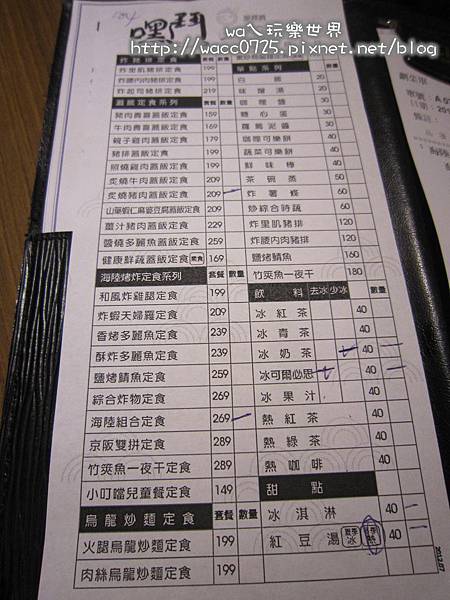 wa入玩樂世界
http://wacc0725.pixnet.net/blog
104
嘿鬥
炸豬排定食 套餐 數量
炸里肌豬排定食 199
炸腰內肉豬排定食 199
炸起司豬排定食 219
蓋飯定食系列 套餐 數量
豬肉壽喜蓋飯定食 159
牛肉壽喜蓋飯定食 169
親子雞肉蓋飯定食 179
豬排蓋飯定食 189
照燒雞肉蓋飯定食 199
炙燒牛肉蓋飯定食 209
炙燒豬肉蓋飯定食 209
山藥蝦仁麻婆豆腐蓋飯定食 209
薑汁豬肉蓋飯定食 209
醬燒多麗魚蓋飯定食 259
健康鮮蔬蓋飯定食 素食 169
海陸烤炸定食系列 套餐 數量
和風炸雞腿定食 199
炸蝦天婦羅定食 209
香烤多麗魚定食 239
酥炸多麗魚定食 239
鹽烤鯖魚定食 259
綜合炸物定食 269
海陸組合定食 269
京阪雙拼定食 289
竹筴魚一夜干定食 289
小叮噹兒童餐定食 149
烏龍炒麵定食 套餐 數量
火腿烏龍炒麵定食 199
肉絲烏龍炒麵定食 199
單點系列
白飯 20
味增湯 30
咖哩醬 30
糖心蛋 20
蘿蔔泥醬 30
咖哩可樂餅 40
蔬菜可樂餅 40
鮮味棒 40
茶碗蒸 50
炸薯條 60
炒綜合時蔬 60
炸里肌豬排 120
炸腰內肉豬排 120
鹽烤鯖魚 160
竹筴魚一夜干 180
飲料 去冰 少冰
冰紅茶 40
冰青茶 40
冰奶茶 40
冰可爾必思 40
冰果汁 40
熱紅茶 40
熱綠茶 40
熱咖啡 40
甜點
冰淇淋 40
紅豆湯 夏季 冰 冬季 熱 40
2012.07